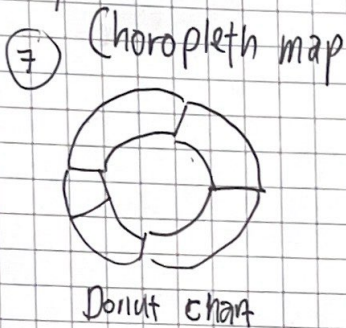 Choropleth map
7
Donut chart